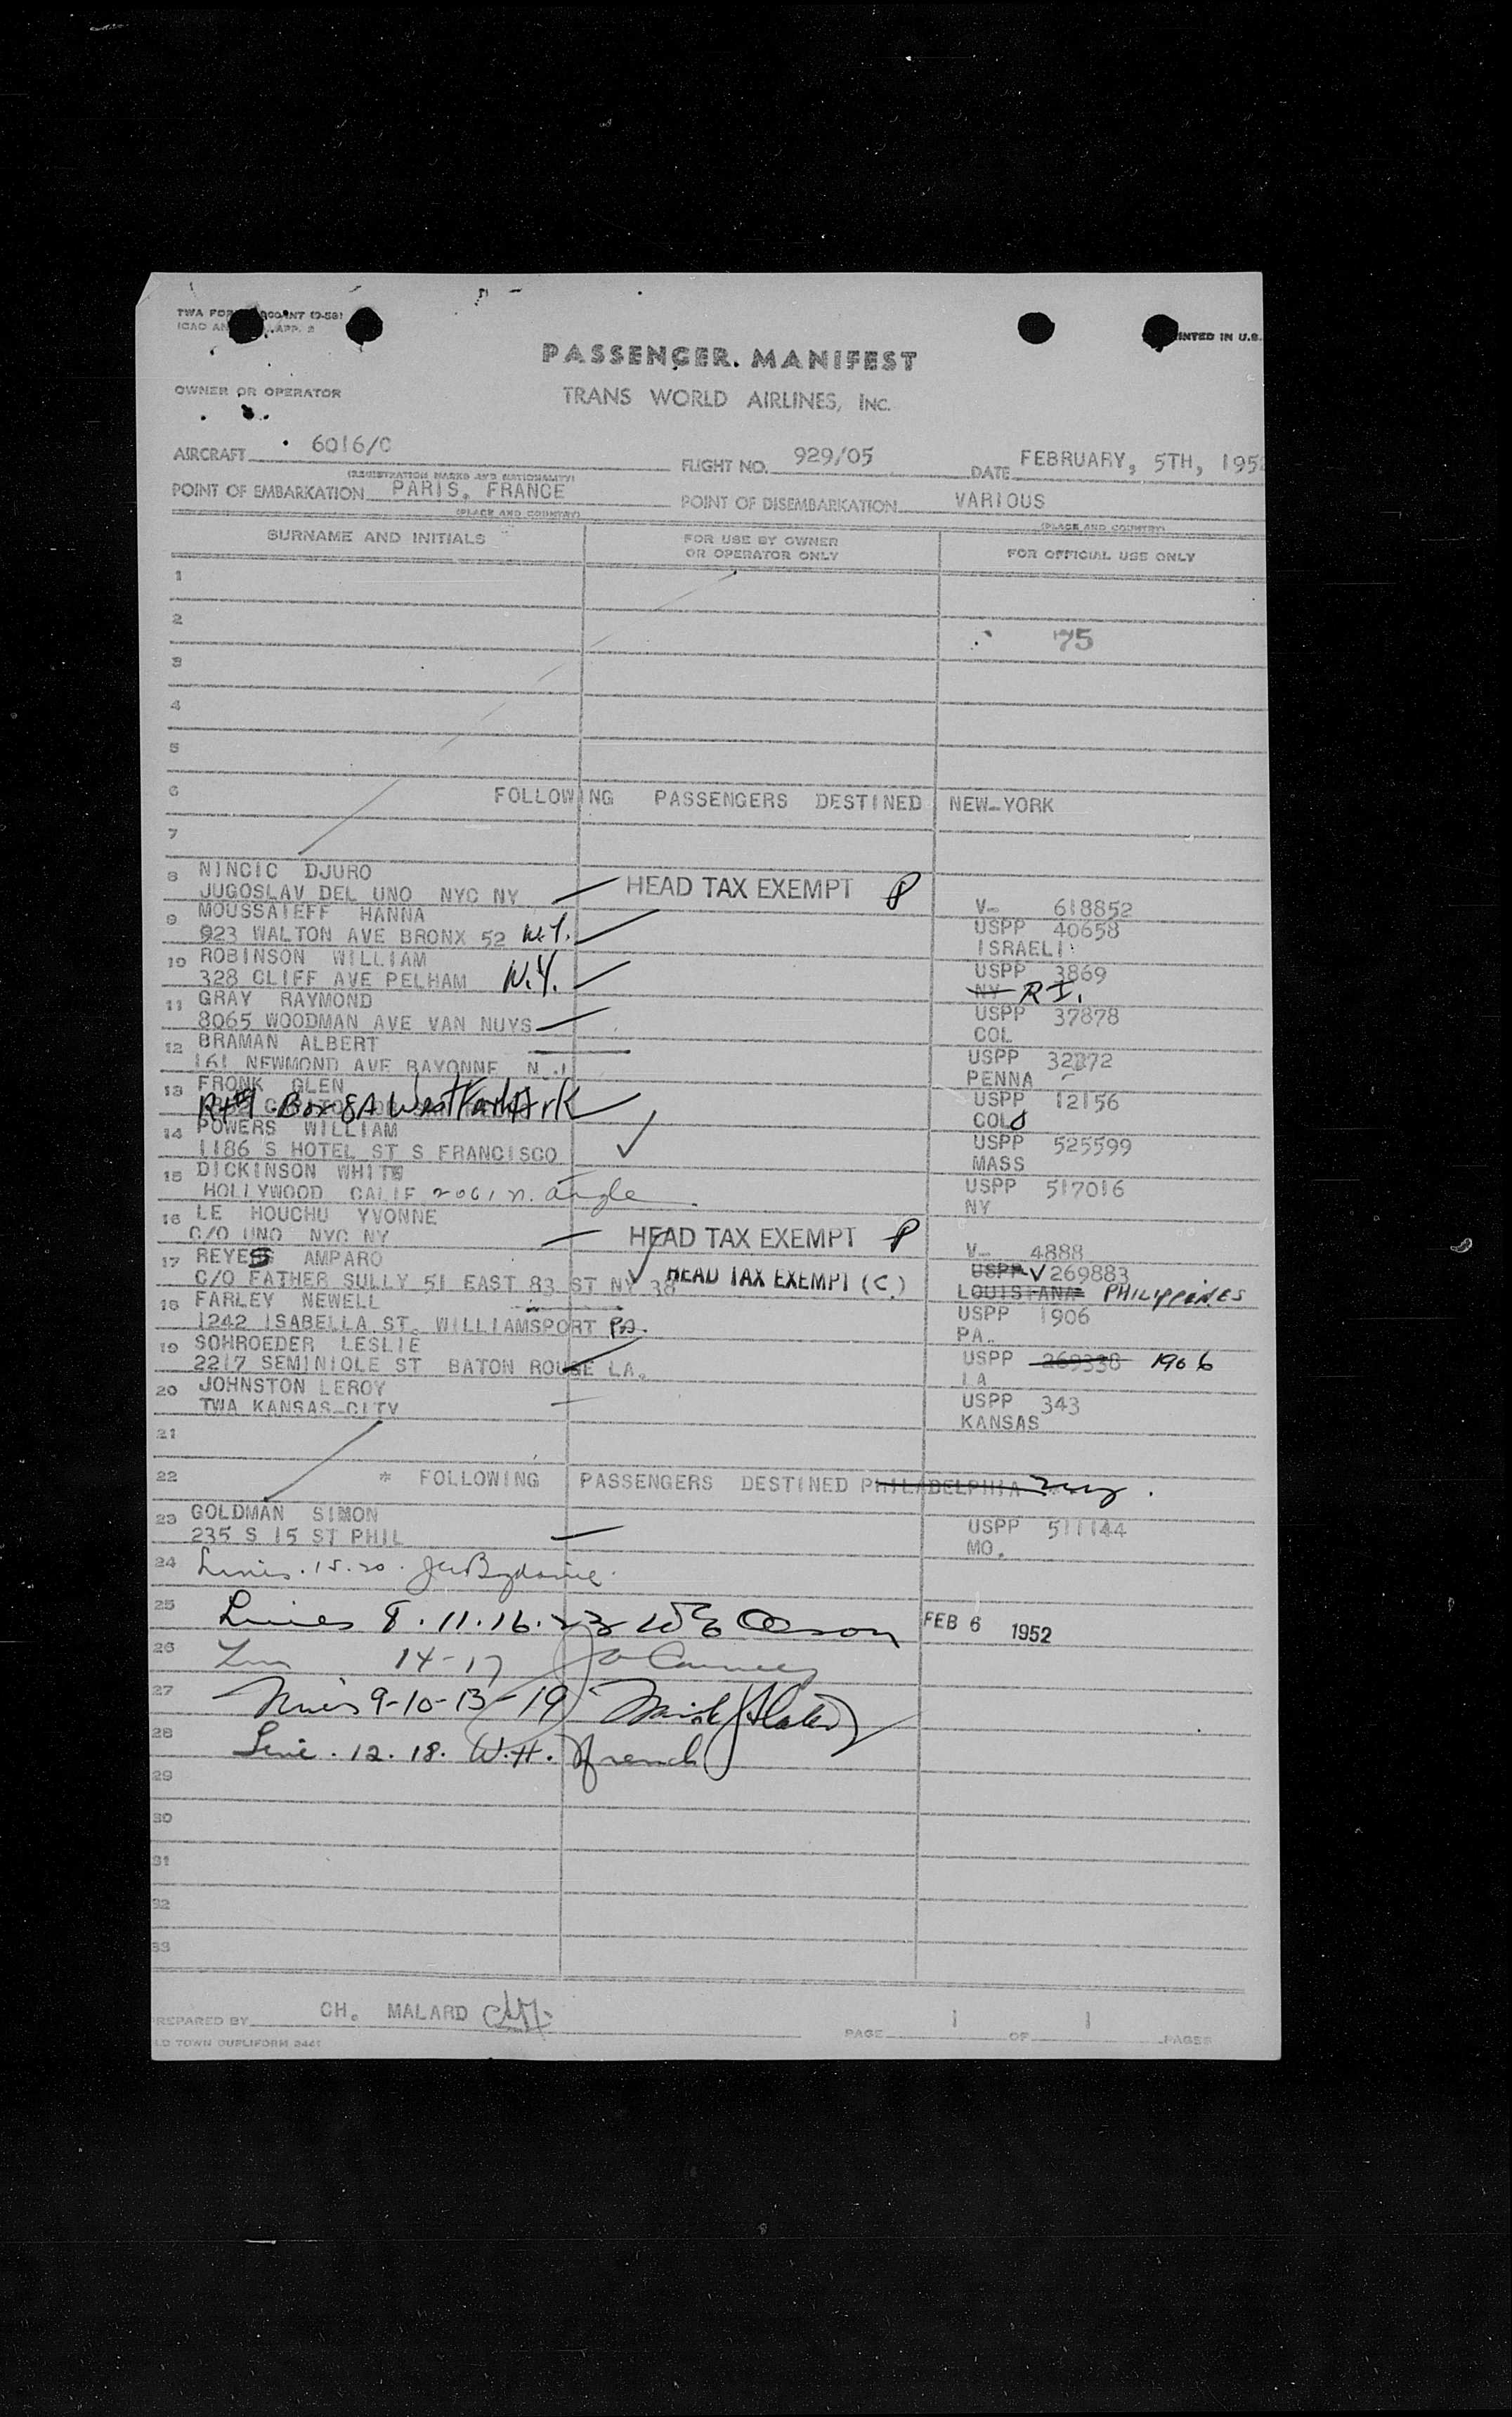 PRINTED IN U.S.
PASSENGER MANIFEST
OWNER OR OPERATOR
TRANS WORLD AIRLINES, INC.
AIRCRAFT 6016/C FLIGHT NO. 929/05 DATE FEBRUARY, 5TH, 195
(REGISTRATION MARKS AND NATIONALITY)
POINT OF EMBARKATION PARIS, FRANCE POINT OF DISEMBARKATION VARIOUS
(PLACE AND COUNTRY) (PLACE AND COUNTRY)
SURNAME AND INITIALS FOR USE BY OWNER OR OPERATOR ONLY FOR OFFICIAL USE ONLY
1
2 75
3
4
5
6 FOLLOWING PASSENGERS DESTINED NEW-YORK
7
8 NINCIC DJURO
JUGOSLAV DEL UNO NYC NY HEAD TAX EXEMPT P V- 618852
9 MOUSSAIEFF HANNA USPP 40658
923 WALTON AVE BRONX 52 N.Y. ISRAELI
10 ROBINSON WILLIAM USPP 3869
328 CLIFF AVE PELHAM N.Y. NY R I.
11 GRAY RAYMOND USPP 37878
8065 WOODMAN AVE VAN NUYS COL
12 BRAMAN ALBERT USPP
161 NEWMOND AVE BAYONNE N.J PENNA
13 FRONK GLEN USPP 12156
Rt #1 Box 8A West Fork Ark COLO
14 POWERS WILLIAM USPP 525599
1186 S HOTEL ST S FRANCISCO MASS
15 DICKINSON WHITE USPP 517016
HOLLYWOOD CALIF 2061 N. Argle NY
16 LE HOUCHU YVONNE
C/O UNO NYC NY HEAD TAX EXEMPT P V- 4888
17 REYES AMPARO USPP V 269883
C/O FATHER SULLY 51 EAST 83 ST NY 38 HEAD TAX EXEMPT (C.) LOUISIANA PHILIPPINES
18 FARLEY NEWELL USPP 1906
1242 ISABELLA ST. WILLIAMSPORT PA. PA.
19 SOHROEDER LESLIE USPP 269338 1906
2217 SEMINIOLE ST BATON ROUGE LA. LA
20 JOHNSTON LEROY USPP 343
TWA KANSAS-CITY KANSAS
21
22 * FOLLOWING PASSENGERS DESTINED PHILADELPHIA
23 GOLDMAN SIMON USPP 511144
235 S 15 ST PHIL MO.
24 Lines. 15. 20.
25 Lines 8. 11. 16. 23 W E Olson FEB 6 1952
26 14-17
27 9-10-13-19
28 Line. 12. 18. W.H. French
29
30
31
32
33
PREPARED BY CH. MALARD PAGE 1 OF 1 PAGES